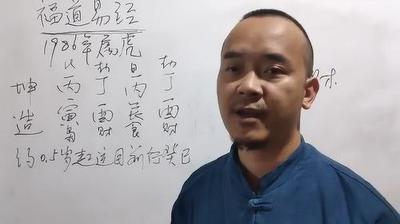 福道易经
1986年属虎
比 劫 日 劫
坤 丙 丁 丙 丁
造 寅 酉 辰 酉
枭 财 食 财
约0.5岁起运目前行癸巳